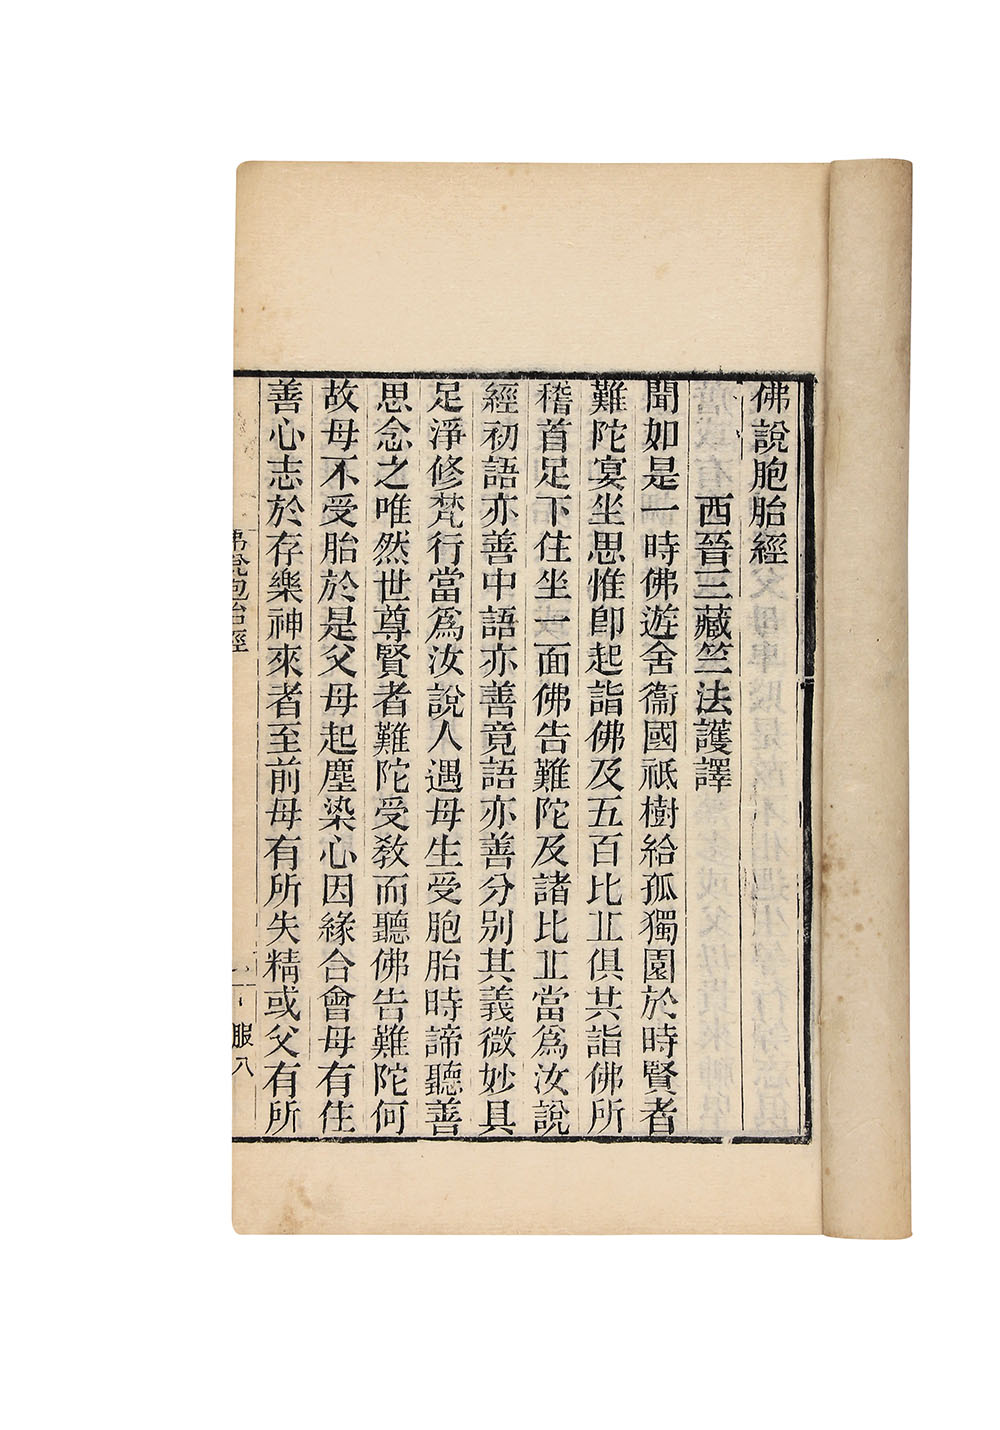 佛說胞胎經
西晉三藏竺法護譯
聞如是一時佛遊舍衞國祇樹給孤獨園於時賢者
難陀宴坐思惟卽起詣佛及五百比丘俱共詣佛所
稽首足下住坐一面佛告難陀及諸比丘當爲汝說
經初語亦善中語亦善竟語亦善分別其義微妙具
足淨修梵行當爲汝說人遇母生受胞胎時諦聽善
思念之唯然世尊賢者難陀受敎而聽佛告難陀何
故母不受胎於是父母起塵染心因緣合會母有住
善心志於存樂神來者至前母有所失精或父有所
佛說胞胎經
服八